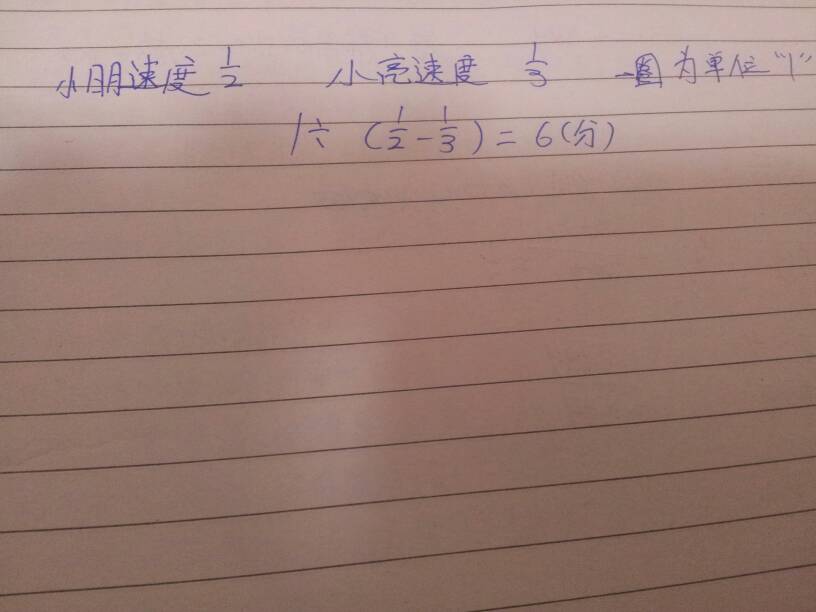 小朋速度 1/2 小亮速度 1/3 一圈为单位“1”
1÷(1/2-1/3)=6(分)